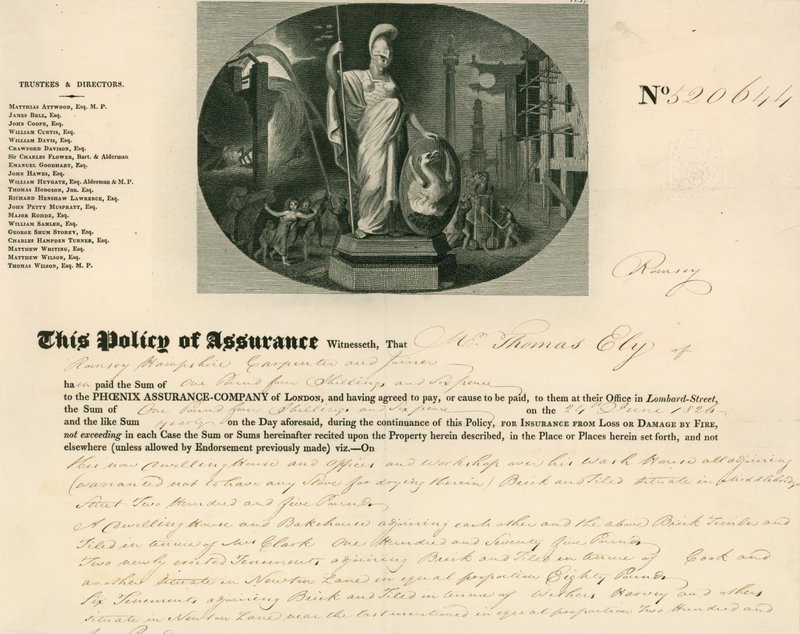 TRUSTEES & DIRECTORS.
MATTHIAS ATTWOOD, Esq. M. P.
JAMES BELL, Esq.
JOHN COOPE, Esq.
WILLIAM CURTIS, Esq.
WILLIAM DAVIS, Esq.
CRAWFORD DAVISON, Esq.
Sir CHARLES FLOWER, Bart. & Alderman
EMANUEL GOODHART, Esq.
JOHN HAWES, Esq.
WILLIAM HEYGATE, Esq. Alderman & M. P.
THOMAS HODGSON, Jun. Esq.
RICHARD HENSHAW LAWRENCE, Esq.
JOHN PETTY MUSPRATT, Esq.
MAJOR ROHDE, Esq.
WILLIAM SAMLER, Esq.
GEORGE SHUM STOREY, Esq.
CHARLES HAMPDEN TURNER, Esq.
MATTHEW WHITING, Esq.
MATTHEW WILSON, Esq.
THOMAS WILSON, Esq. M. P.
No 520644
Romsey
This Policy of Assurance Witnesseth, That Mr. Thomas Ely of
Romsey Hampshire Carpenter and Joiner
having paid the Sum of One Pound four Shillings and Six pence
to the PHŒNIX ASSURANCE-COMPANY of LONDON, and having agreed to pay, or cause to be paid, to them at their Office in Lombard-Street,
the Sum of One Pound four Shillings and Six pence on the 24th June 1826
and the like Sum Yearly on the Day aforesaid, during the continuance of this Policy, FOR INSURANCE FROM LOSS OR DAMAGE BY FIRE,
not exceeding in each Case the Sum or Sums hereinafter recited upon the Property herein described, in the Place or Places herein set forth, and not
elsewhere (unless allowed by Endorsement previously made) viz.—On
His now dwelling House and Offices and Workshop over his Wash House all adjoining
(warranted not to have any Stove for drying therein) Brick and Tiled situate in Middlebridge
Street Two Hundred and five Pounds
A dwelling House and Bakehouse adjoining each other and the above Brick Timber and
Tiled in tenure of Mrs Clark One Hundred and Seventy five Pounds
Two newly erected Tenements adjoining Brick and Tiled in tenure of Cook and
another situate in Newton Lane in equal proportion Eighty Pounds
Six Tenements adjoining Brick and Tiled in tenure of Withers Harvey and others
situate in Newton Lane near the last mentioned in equal proportion Two Hundred and